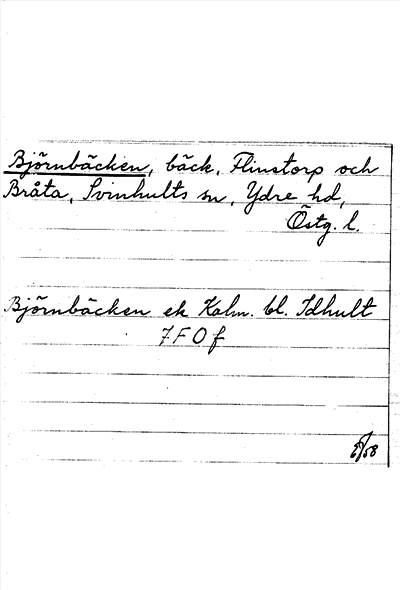 Björnbäcken, bäck, Flinstorp och
Bråta, Svinhults sn, Ydre hd,
Östg. l.
Björnbäcken ek Kalm. bl. Idhult
7 F O f